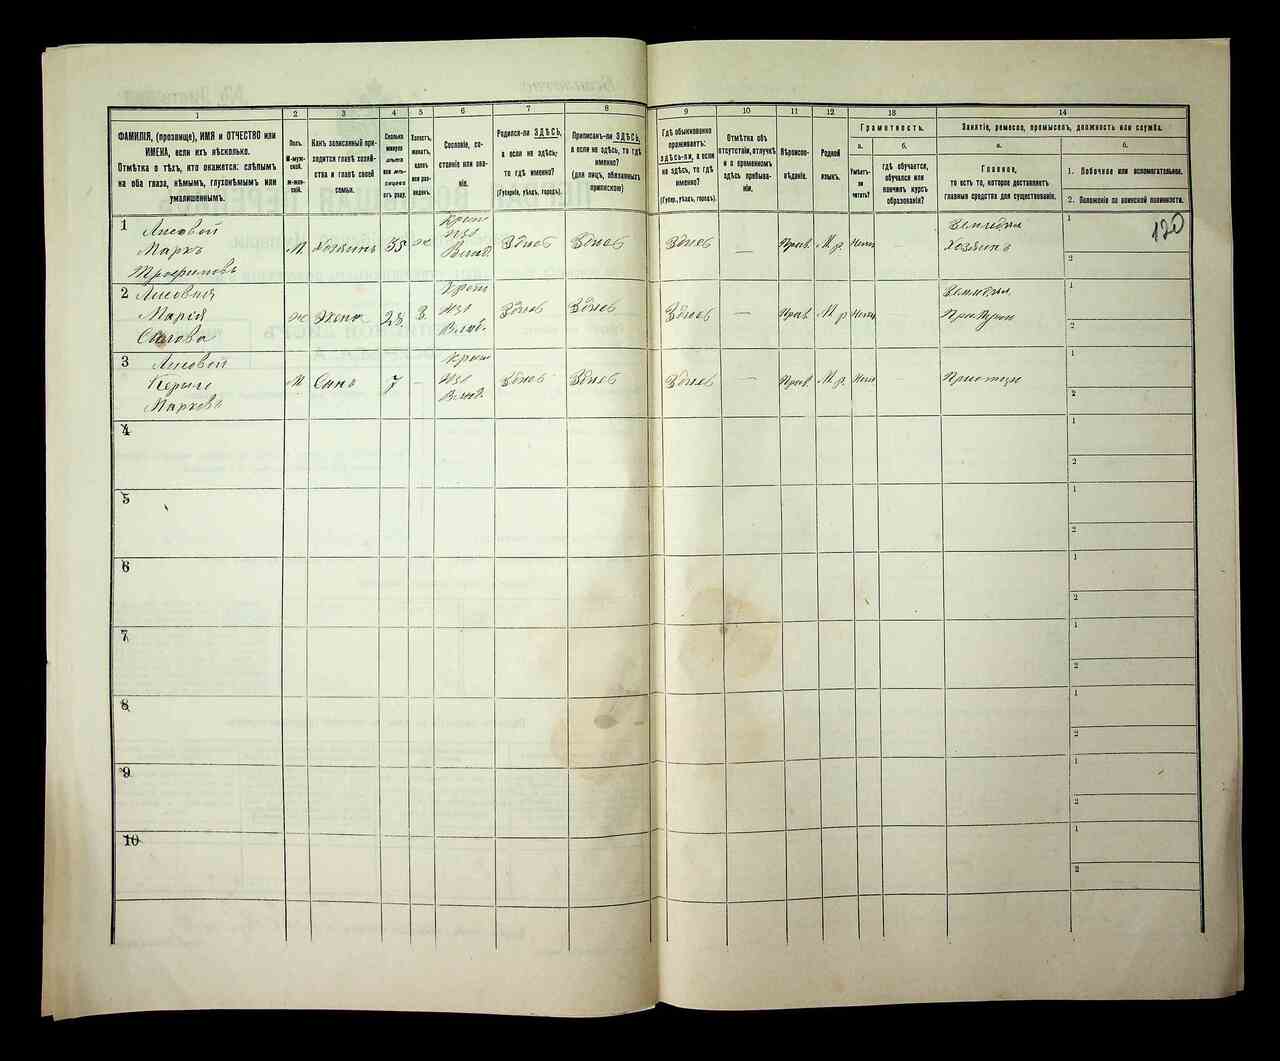 1
2
3
4
5
6
7
8
9
10
11
12
13
14
ФАМИЛІЯ, (прозвище), ИМЯ и ОТЧЕСТВО или
ИМЕНА, если ихъ нѣсколько.
Отмѣтка о тѣхъ, кто окажется: слѣпымъ
на оба глаза, нѣмымъ, глухонѣмымъ или
умалишеннымъ.
Полъ.
М-муж-
ской.
ж-жен-
скій.
Какъ записанный при-
ходится главѣ хозяй-
ства и главѣ своей
семьи.
Сколько
минуло
лѣтъ
или мѣ-
сяцевъ
отъ роду.
Холостъ,
женатъ,
вдовъ
или раз-
веденъ.
Сословіе, со-
стояніе или зва-
ніе.
Родился-ли ЗДѢСЬ,
а если не здѣсь,
то гдѣ именно?
(Губернія, уѣздъ, городъ).
Приписанъ-ли ЗДѢСЬ,
а если не здѣсь, то гдѣ
именно?
(для лицъ, обязанныхъ
припискою)
Гдѣ обыкновенно
проживаетъ:
ЗДѢСЬ-ли, а если
не здѣсь, то гдѣ
именно?
(Губер., уѣздъ, городъ).
Отмѣтка объ
отсутствіи, отлучкѣ
и о временномъ
здѣсь пребыва-
ніи.
Вѣроиспо-
вѣданіе.
Родной
языкъ.
Грамотность.
а.
б.
Умѣетъ-
ли
читать?
гдѣ обучается,
обучался или
кончилъ курсъ
образованія?
Занятіе, ремесло, промыселъ, должность или служба.
а.
б.
Главное,
то есть то, которое доставляетъ
главныя средства для существованія.
1. Побочное или вспомогательное.
2. Положеніе по воинской повинности.
120
1
Лисовой
Маркъ
Трофимовъ
М
Хозяинъ
35
ж
Крест
изо
Влад.
Здѣсь
Здѣсь
Здѣсь
—
Прав.
М. р.
Нѣтъ
Земледѣл
Хозяинъ
1
2
2
Лисовая
Марія
ж
Жена
28
З.
Крест
изо
Влад.
Здѣсь
Здѣсь
Здѣсь
—
Прав.
М. р
Нѣтъ
Земледѣл
При
1
2
3
Лисовой
Марковъ
М
Сынъ
7
—
Крест
изо
Влад.
Здѣсь
Здѣсь
Здѣсь
—
Прав.
М. р.
Нѣт
При отцѣ
1
2
4
1
2
5
1
2
6
1
2
7
1
2
8
1
2
9
1
2
10
1
2